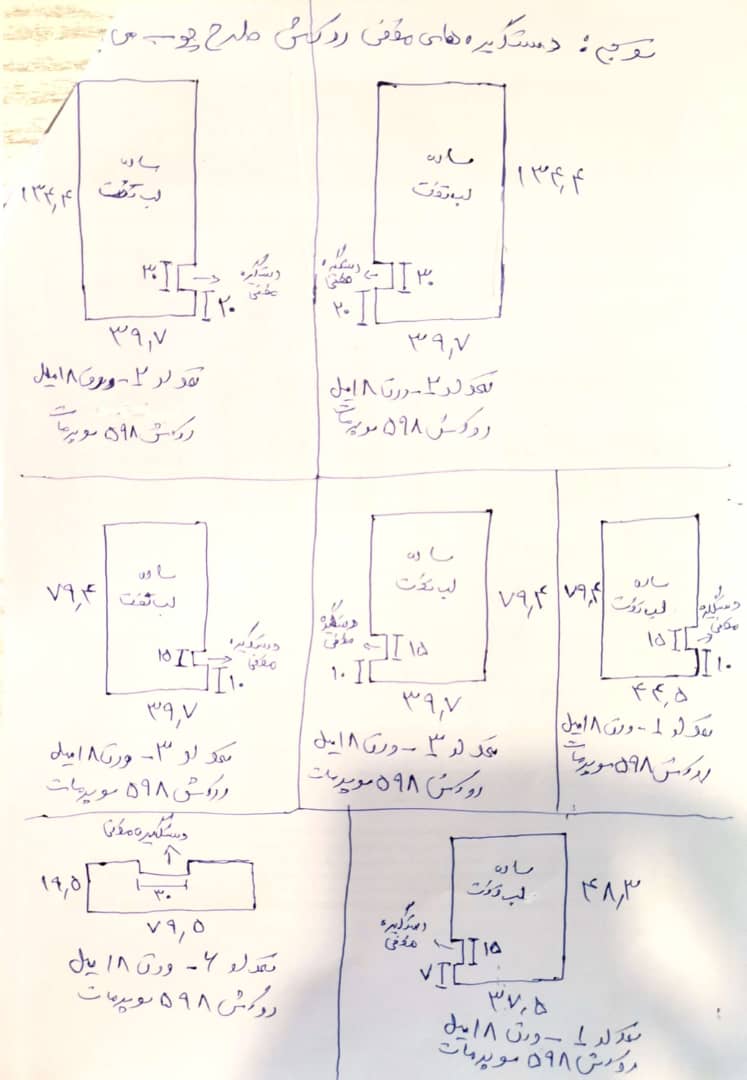 توجه: دستگیره های مخفی روکش طرح چوب می
ساده
لب تخت
۱۳۴,۴
۳۰
دستگیره
مخفی
۲۰
۳۹,۷
تعداد ۲ - ورق ۱۸ میل
روکش ۵۹۸ سوپرمات
ساده
لب تخت
۱۳۴,۴
دستگیره
مخفی
۳۰
۲۰
۳۹,۷
تعداد ۲ - ورق ۱۸ میل
روکش ۵۹۸ سوپرمات
ساده
لب تخت
۷۹,۴
۱۵
دستگیره
مخفی
۱۰
۳۹,۷
تعداد ۳ - ورق ۱۸ میل
روکش ۵۹۸ سوپرمات
ساده
لب تخت
۷۹,۴
دستگیره
مخفی
۱۵
۱۰
۳۹,۷
تعداد ۳ - ورق ۱۸ میل
روکش ۵۹۸ سوپرمات
۷۹,۴
ساده
لب تخت
دستگیره
مخفی
۱۵
۱۰
۴۴,۵
تعداد ۱ - ورق ۱۸ میل
روکش ۵۹۸ سوپرمات
دستگیره مخفی
۱۹,۵
۳۰
۷۹,۵
تعداد ۶ - ورق ۱۸ میل
روکش ۵۹۸ سوپرمات
ساده
لب تخت
۴۸,۳
دستگیره
مخفی
۱۵
۷
۳۷,۵
تعداد ۱ - ورق ۱۸ میل
روکش ۵۹۸ سوپرمات